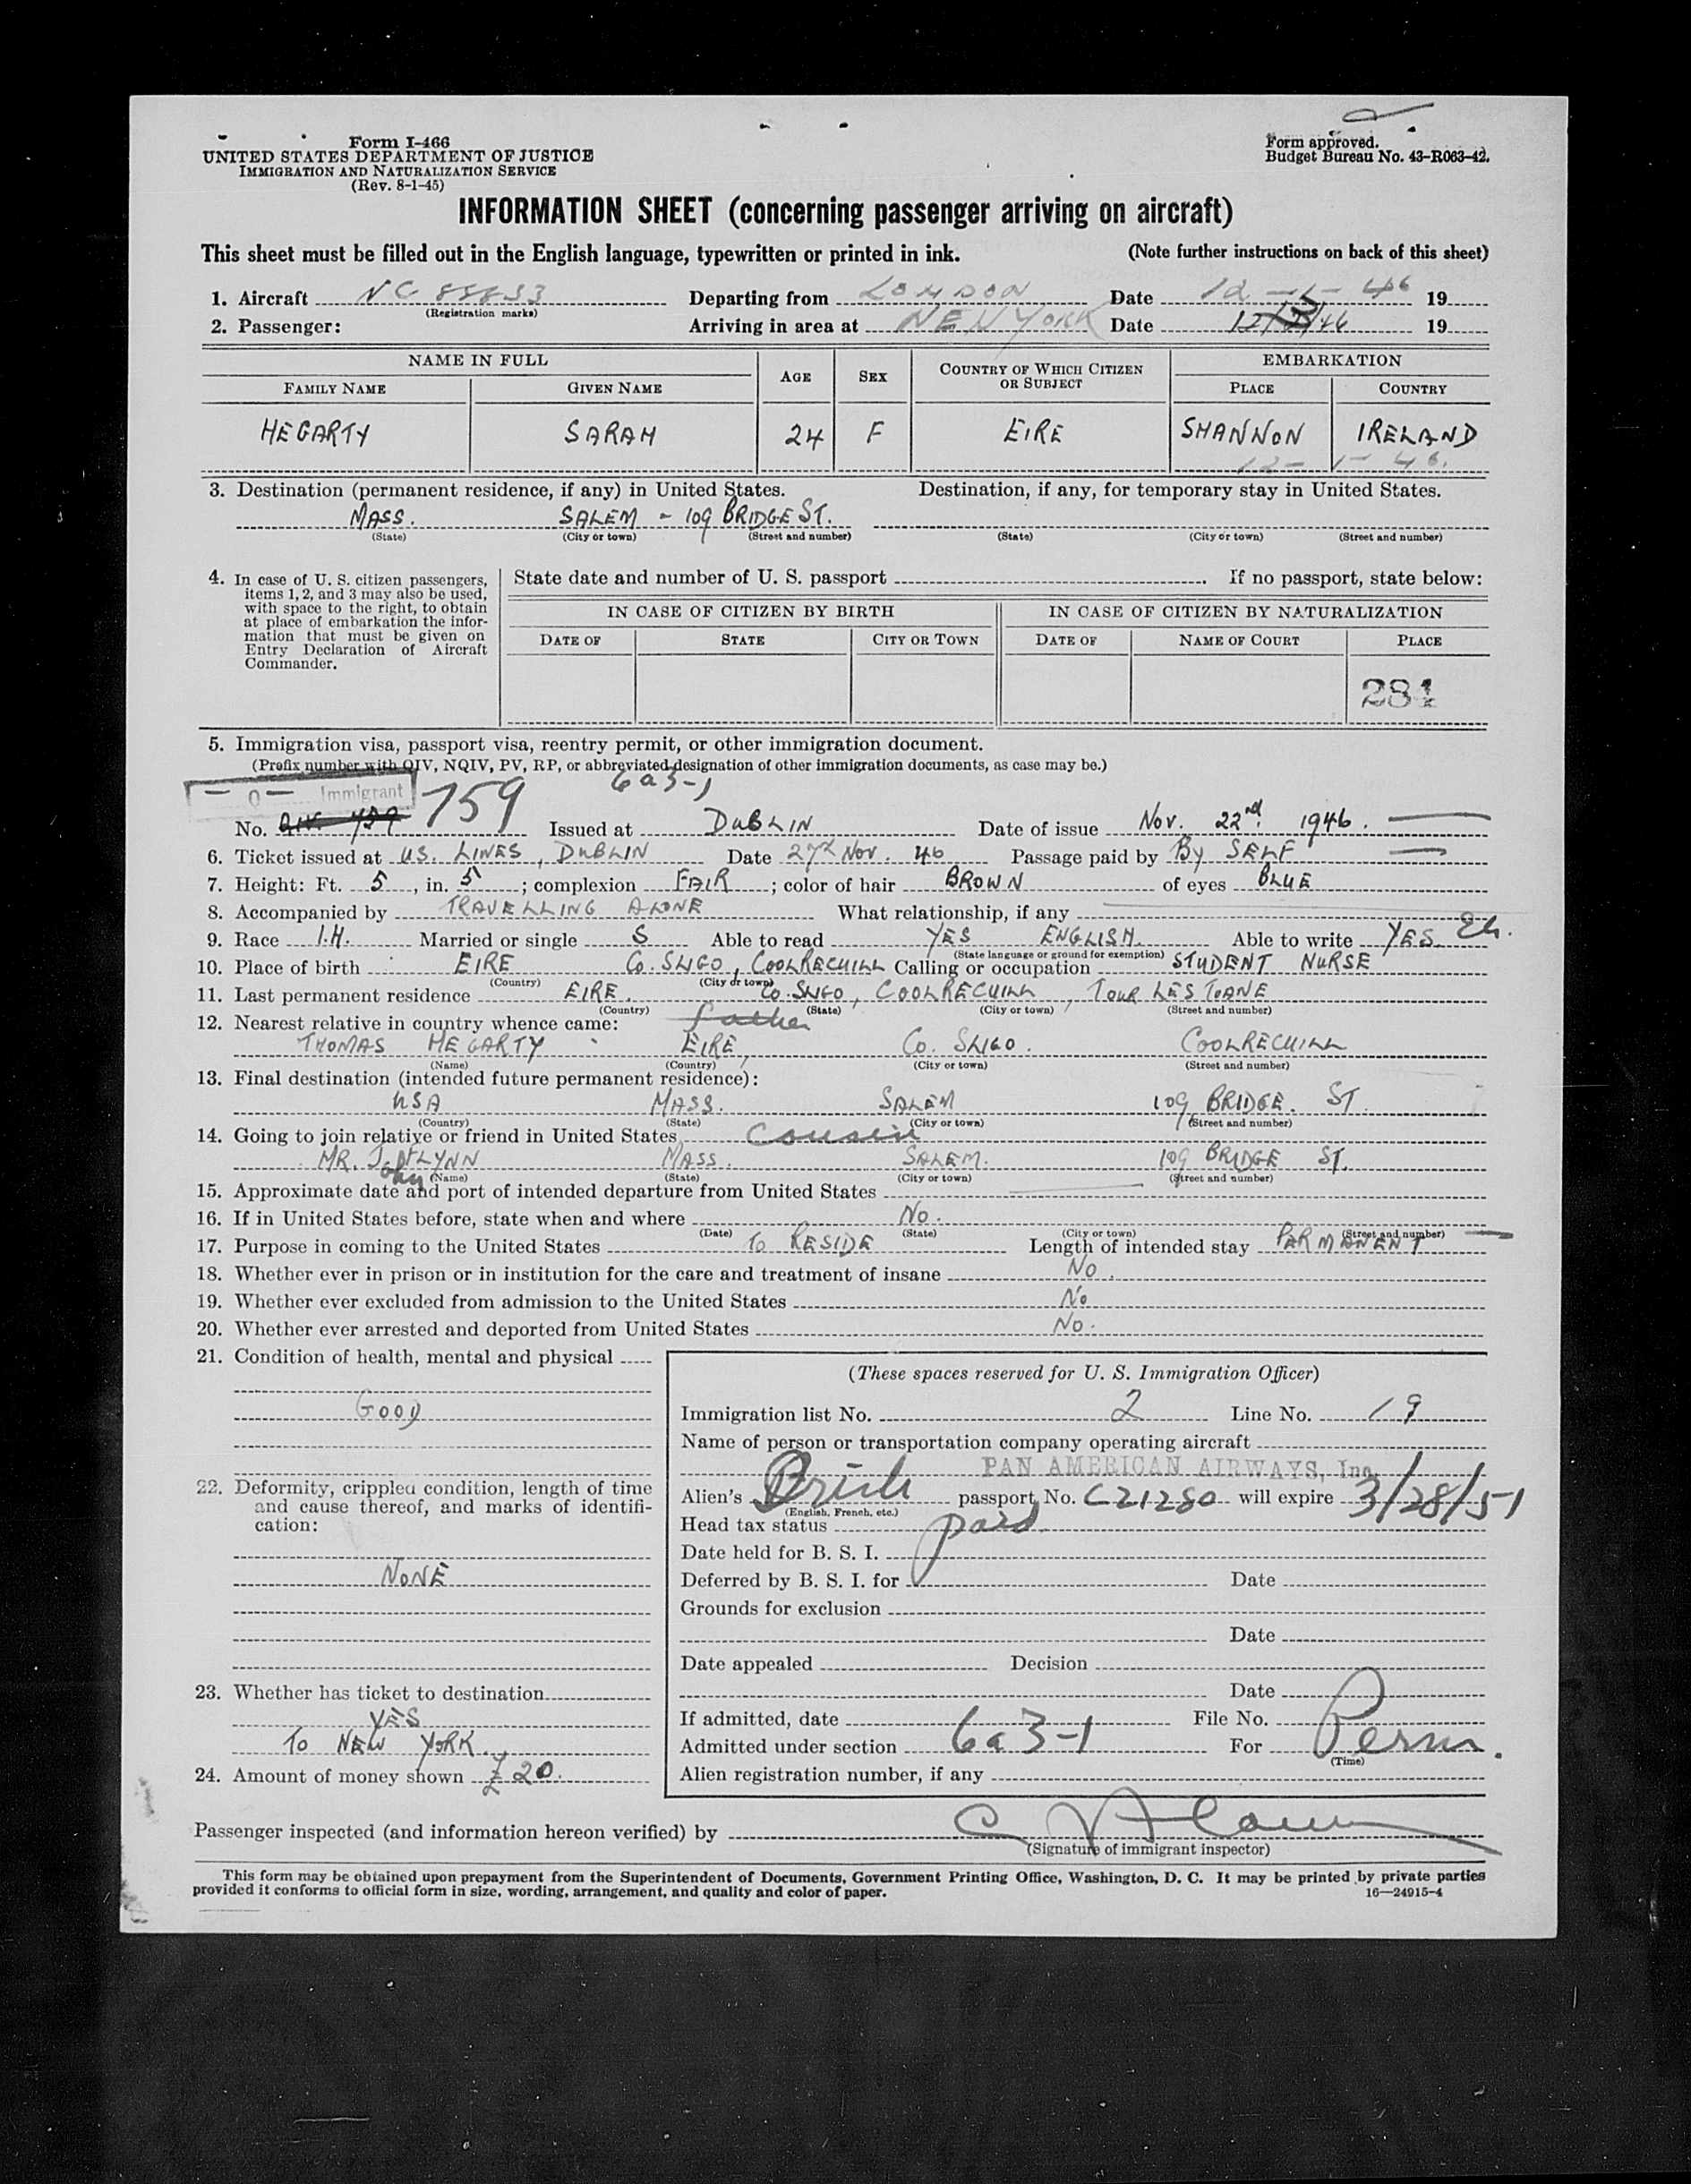 Form I-466
UNITED STATES DEPARTMENT OF JUSTICE
IMMIGRATION AND NATURALIZATION SERVICE
(Rev. 8-1-45)
Form approved.
Budget Bureau No. 43-R063-42.
INFORMATION SHEET (concerning passenger arriving on aircraft)
This sheet must be filled out in the English language, typewritten or printed in ink. (Note further instructions on back of this sheet)
1. Aircraft NC 88833 Departing from LONDON Date 12-1-46 19
(Registration marks)
2. Passenger: Arriving in area at NEW YORK Date 12/ /46 19
NAME IN FULL AGE SEX COUNTRY OF WHICH CITIZEN OR SUBJECT EMBARKATION
FAMILY NAME GIVEN NAME PLACE COUNTRY
HEGARTY SARAH 24 F EIRE SHANNON IRELAND
12-1-46.
3. Destination (permanent residence, if any) in United States. Destination, if any, for temporary stay in United States.
MASS. SALEM - 109 BRIDGE ST.
(State) (City or town) (Street and number) (State) (City or town) (Street and number)
4. In case of U. S. citizen passengers, items 1, 2, and 3 may also be used, with space to the right, to obtain at place of embarkation the information that must be given on Entry Declaration of Aircraft Commander.
State date and number of U. S. passport . If no passport, state below:
IN CASE OF CITIZEN BY BIRTH IN CASE OF CITIZEN BY NATURALIZATION
DATE OF STATE CITY OR TOWN DATE OF NAME OF COURT PLACE
281
5. Immigration visa, passport visa, reentry permit, or other immigration document.
(Prefix number with QIV, NQIV, PV, RP, or abbreviated designation of other immigration documents, as case may be.)
— Q — Immigrant 6a3-1
No. QIV. 759 759 Issued at DUBLIN Date of issue Nov. 22nd. 1946.
6. Ticket issued at US. LINES, DUBLIN Date 27th Nov. 46 Passage paid by By SELF
7. Height: Ft. 5, in. 5; complexion FAIR; color of hair BROWN of eyes BLUE
8. Accompanied by TRAVELLING ALONE What relationship, if any
9. Race I.H. Married or single S Able to read YES ENGLISH. Able to write YES.
(State language or ground for exemption)
10. Place of birth EIRE CO. SLIGO, COOLRECUILL Calling or occupation STUDENT NURSE
(Country) (City or town)
11. Last permanent residence EIRE. CO. SLIGO, COOLRECUILL, TOURLESTRANE
(Country) (State) (City or town) (Street and number)
12. Nearest relative in country whence came: father
THOMAS HEGARTY EIRE, CO. SLIGO. COOLRECUILL
(Name) (Country) (City or town) (Street and number)
13. Final destination (intended future permanent residence):
USA MASS. SALEM 109 BRIDGE. ST.
(Country) (State) (City or town) (Street and number)
14. Going to join relative or friend in United States Cousin
MR. J. FLYNN MASS. SALEM. 109 BRIDGE ST.
John (Name) (State) (City or town) (Street and number)
15. Approximate date and port of intended departure from United States
16. If in United States before, state when and where No.
(Date) (State) (City or town) (Street and number)
17. Purpose in coming to the United States TO RESIDE Length of intended stay PERMANENT
18. Whether ever in prison or in institution for the care and treatment of insane No.
19. Whether ever excluded from admission to the United States No
20. Whether ever arrested and deported from United States No.
21. Condition of health, mental and physical
GOOD
22. Deformity, crippled condition, length of time and cause thereof, and marks of identification:
NONE
23. Whether has ticket to destination
YES
TO NEW YORK.
24. Amount of money shown £20.
(These spaces reserved for U. S. Immigration Officer)
Immigration list No. 2 Line No. 19
Name of person or transportation company operating aircraft
PAN AMERICAN AIRWAYS, Inc.
Alien's Irish passport No. C21280 will expire 3/28/51
(English, French, etc.)
Head tax status paid
Date held for B. S. I.
Deferred by B. S. I. for Date
Grounds for exclusion
Date
Date appealed Decision
Date
If admitted, date File No.
Admitted under section 6a3-1 For Perm.
(Time)
Alien registration number, if any
Passenger inspected (and information hereon verified) by
(Signature of immigrant inspector)
This form may be obtained upon prepayment from the Superintendent of Documents, Government Printing Office, Washington, D. C. It may be printed by private parties
provided it conforms to official form in size, wording, arrangement, and quality and color of paper. 16—24915-4